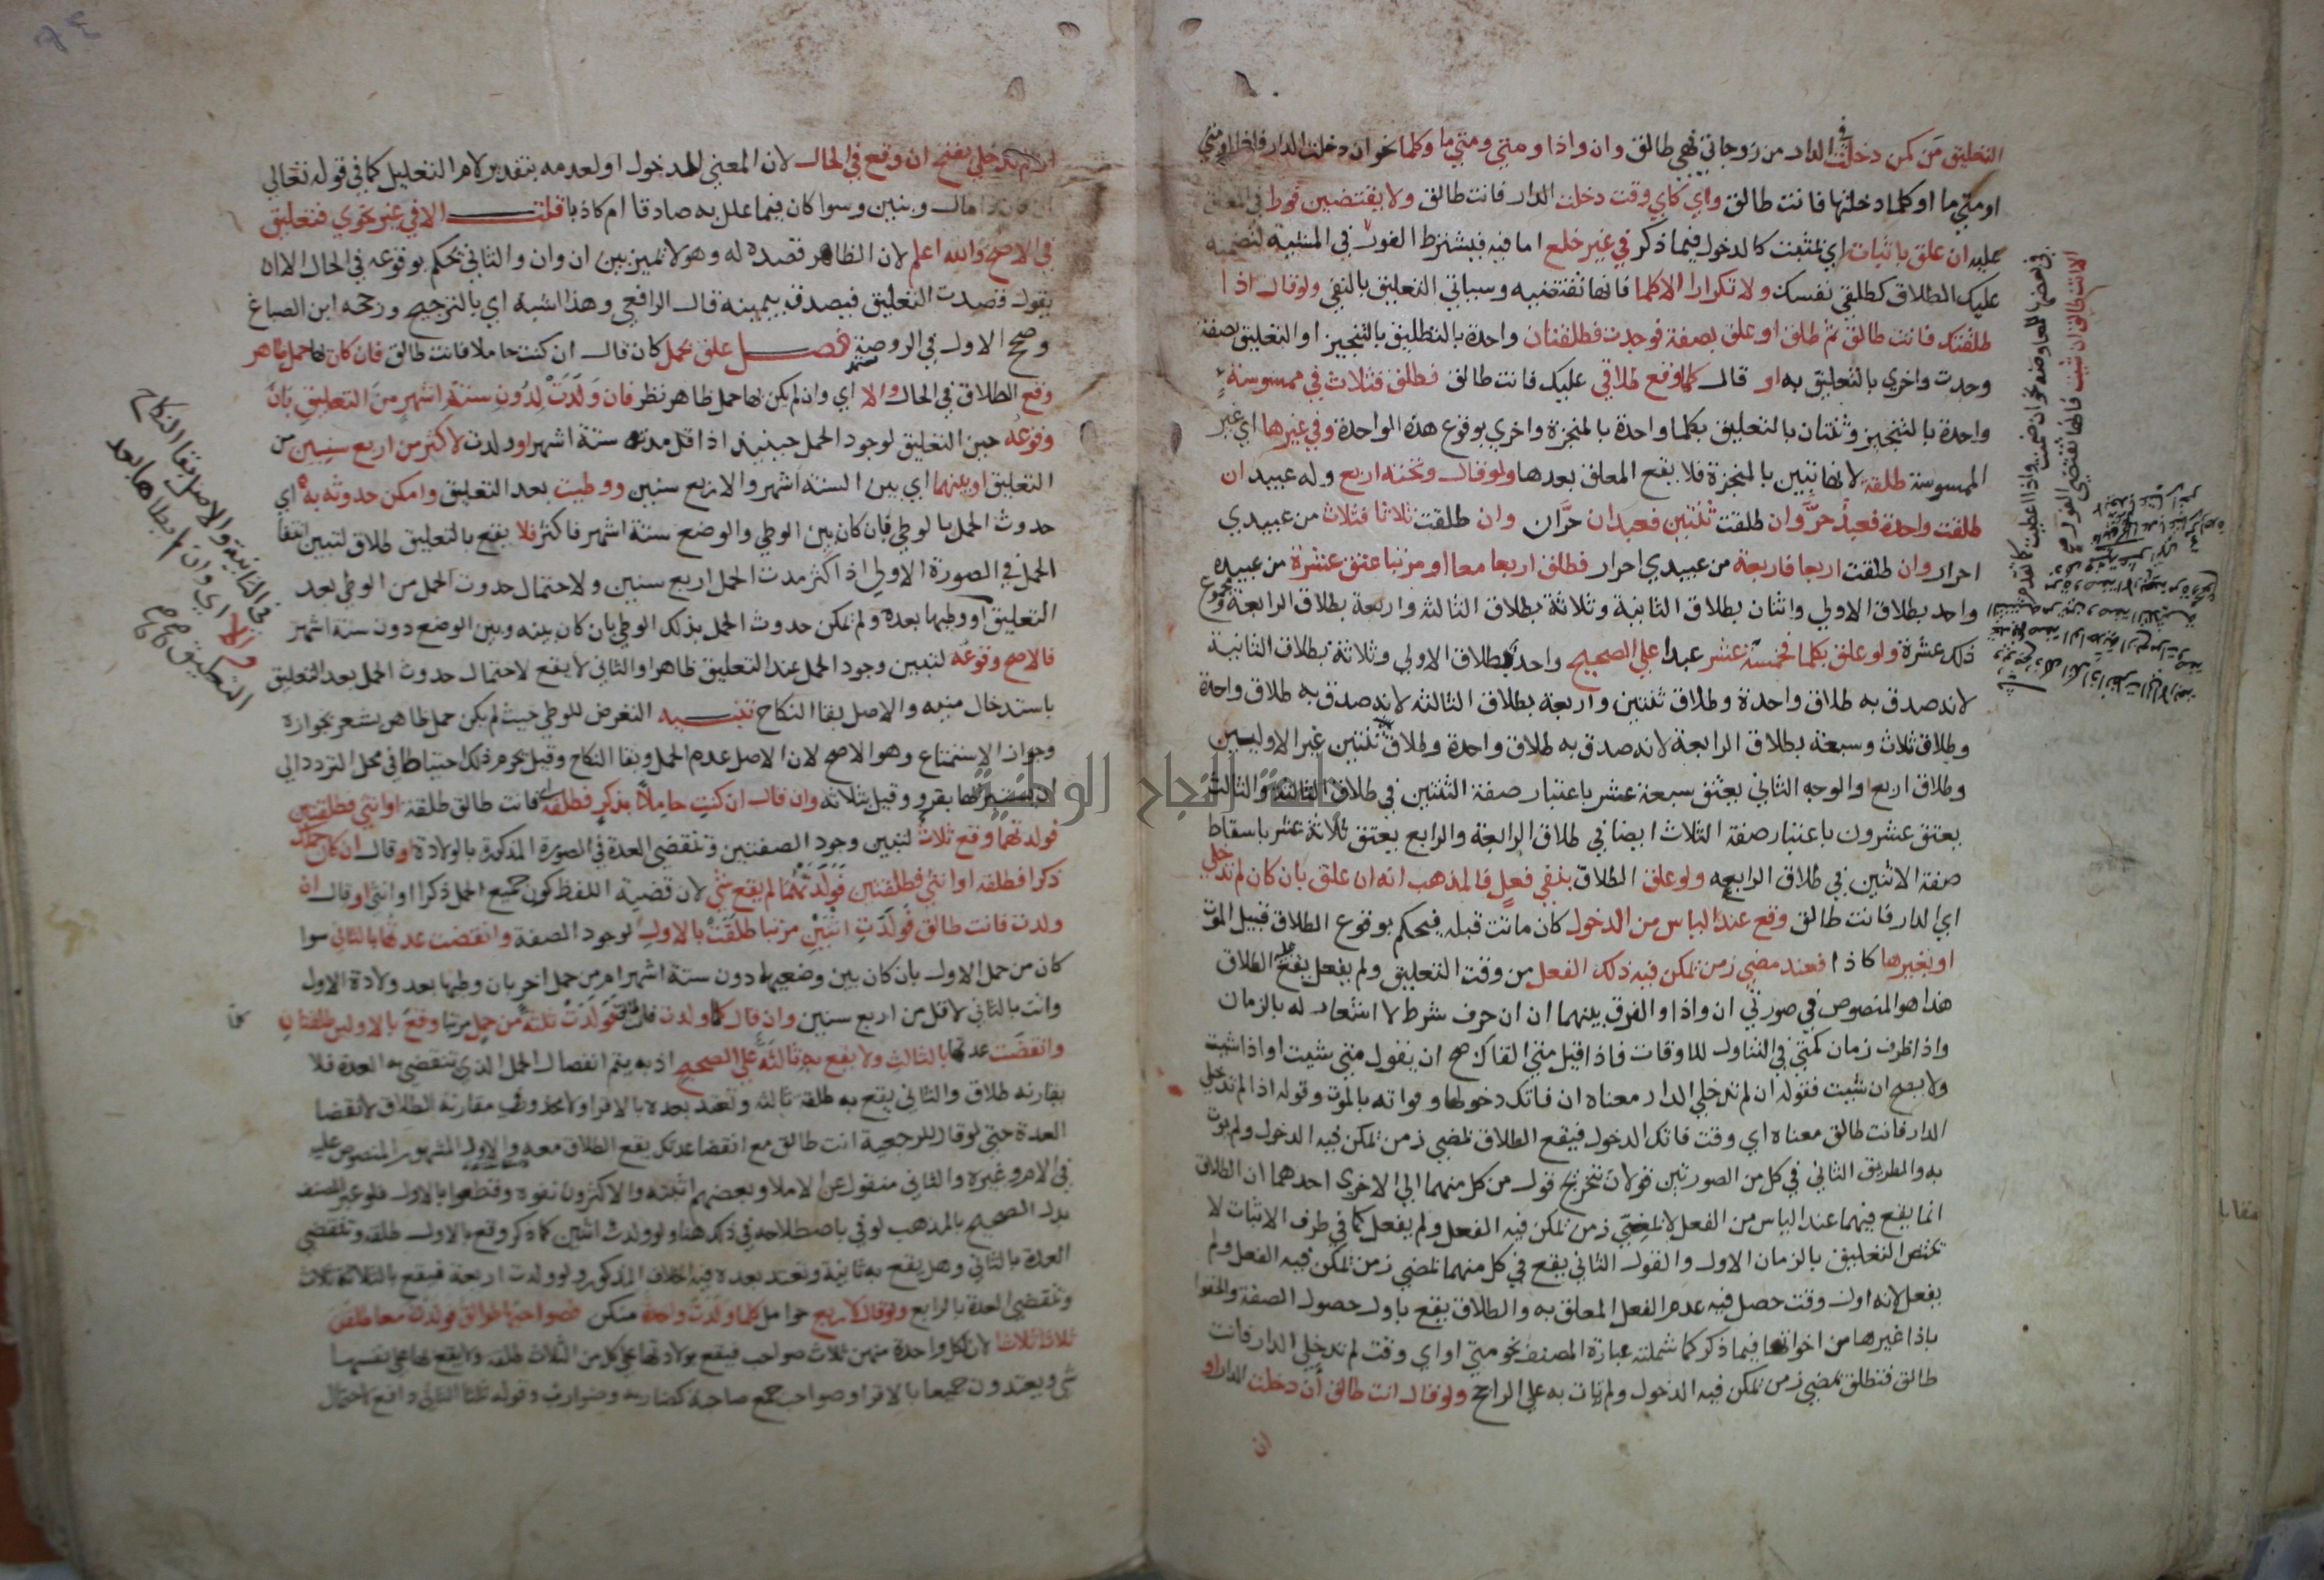 التعليق من كمن دخلت الدار من زوجاتي فهي طالق وان واذا ومتي ومتي ما وكلما نحو ان دخلت الدار
او متي ما او كلما دخلتها فانت طالق واي كاي وقت دخلت الدار فانت طالق ولا يقتضين فورا في المعلق
عليه ان علق باثبات اي بمثبت كالدخول فيما ذكر في غير خلع اما فيه فيشترط الفور في المشيئة لتضمنه
عليك الطلاق كطلقي نفسك ولا تكرارا الا كلما فانها تقتضيه وسياتي التعليق بالنفي ولو قال اذا
طلقتك فانت طالق ثم طلق او علق بصفة فوجدت فطلقتان واحدة بالتطليق بالتنجيز او التعليق بصفة
وجدت واخري بالتعليق به او قال كلما وقع طلاقي عليك فانت طالق فطلق فثلاث في ممسوسة
واحدة بالتنجيز وثنتان بالتعليق بكلما واحدة بالمنجزة واخري بوقوع هذه الواحدة وفي غيرها اي غير
الممسوسة طلقة لانها تبين بالمنجزة فلا يقع المعلق بعدها ولو قال وتحته اربع وله عبيد ان
طلقت واحدة فعبد حر وان طلقت ثنتين فعبدان حران وان طلقت ثلاثا فثلاث من عبيدي
احرار وان طلقت اربعا فاربعة من عبيدي احرار فطلق اربعا معا او مرتبا عتق عشرة من عبيده
واحد بطلاق الاولي واثنان بطلاق الثانية وثلاثة بطلاق الثالثة واربعة بطلاق الرابعة ومجموع
ذلك عشرة ولو علق بكلما فخمسة عشر عبدا علي الصحيح واحد بطلاق الاولي وثلاثة بطلاق الثانية
لانه صدق به طلاق واحدة وطلاق ثنتين واربعة بطلاق الثالثة لانه صدق به طلاق واحدة
وطلاق ثلاث وسبعة بطلاق الرابعة لانه صدق به طلاق واحدة وطلاق ثنتين غير الاوليين
وطلاق اربع والوجه الثاني يعتق سبعة عشر باعتبار صفة الثنتين في طلاق الثالثة والثالث
يعتق عشرون باعتبار صفة الثلاث ايضا في طلاق الرابعة والرابع يعتق ثلاثة عشر باسقاط
صفة الاثنين في طلاق الرابعة ولو علق الطلاق بنفي فعل فالمذهب انه ان علق بان كان لم تدخلي
اي الدار فانت طالق وقع عند الياس من الدخول كان ماتت قبله فيحكم بوقوع الطلاق قبيل الموت
او بغيرها كاذا فعند مضي زمن تمكن فيه ذلك الفعل من وقت التعليق ولم يفعل يقع الطلاق
هذا هو المنصوص في صورتي ان واذا والفرق بينهما ان ان حرف شرط لا اشعار له بالزمان
واذا ظرف زمان كمتي في التناول للاوقات فاذا قيل متي القاك صح ان يقول متي شيت او اذا شيت
ولا يصح ان شيت فقوله ان لم تدخلي الدار معناه ان فاتك دخولها وفواته بالموت وقوله اذا لم تدخلي
الدار فانت طالق معناه اي وقت فاتك الدخول فيقع الطلاق بمضي زمن تمكن فيه الدخول ولم
به والطريق الثاني في كل من الصورتين قولان بتخريج قول من كل منهما الي الاخري احدهما ان الطلاق
انما يقع فيهما عند الياس من الفعل لا بمضي زمن تمكن فيه الفعل ولم يفعل كما في طرف الاثبات لا
تختص التعليق بالزمان الاول والقول الثاني يقع في كل منهما بمضي زمن تمكن فيه الفعل ولم
يفعل لانه اول وقت حصل فيه عدم الفعل المعلق به والطلاق يقع باول حصول الصفة والحقوا
باذا غيرها من اخواتها فيما ذكر كما شملته عبارة المصنف نحو متي او اي وقت لم تدخلي الدار فانت
طالق فتطلق بمضي زمن تمكن فيه الدخول ولم تات به علي الراجح ولو قال انت طالق أن دخلت الدار او
ان
ان لم تدخلي بفتح ان وقع في الحال لان المعني للدخول او لعدمه بتقدير لام التعليل كما في قوله تعالي
ان كان ذا مال وبنين وسوا كان فيما علل به صادقا ام كاذبا قلت الا في غير نحوي فتعليق
في الاصح والله اعلم لان الظاهر قصده له وهو لا يميز بين ان وان والثاني يحكم بوقوعه في الحال الا ان
يقول قصدت التعليق فيصدق بيمينه قال الرافعي وهذا اشبه اي بالترجيح ورجحه ابن الصباغ
وصحح الاول في الروضة فصل علق بحمل كان قال ان كنت حاملا فانت طالق فان كان بها حمل ظاهر
وقع الطلاق في الحال والا اي وان لم يكن بها حمل ظاهر نظر فان ولدت لدون ستة اشهر من التعليق بان
وقوعه حين التعليق لوجود الحمل حينيذ اذ اقل مدته ستة اشهر او ولدت لاكثر من اربع سنين من
التعليق او بينهما اي بين الستة اشهر والاربع سنين ووطيت بعد التعليق وامكن حدوثه به اي
حدوث الحمل بالوطي فان كان بين الوطي والوضع ستة اشهر فاكثر فلا يقع بالتعليق طلاق لتبين انتفا
الحمل في الصورة الاولي اذ اكثر مدت الحمل اربع سنين ولاحتمال حدوث الحمل من الوطي بعد
التعليق او وطيها بعده ولم تمكن حدوث الحمل بذلك الوطي بان كان بينه وبين الوضع دون ستة اشهر
فالاصح وقوعه لتبين وجود الحمل عند التعليق ظاهرا والثاني لا يقع لاحتمال حدوث الحمل بعد التعليق
باستدخال منيه والاصل بقا النكاح تنبيه التعرض للوطي حيث لم يكن حمل ظاهر يشعر بجوازه
وجواز الاستمتاع وهو الاصح لان الاصل عدم الحمل وبقا النكاح وقيل يحرم ذلك احتياطا في محل التردد الي
استبرائها بقرو وقيل بثلاثة وان قال ان كنت حاملا بذكر فطلقة فانت طالق طلقة او انثي فطلقتين
فولدتهما وقع ثلاث لتبين وجود الصفتين وتنقضي العدة في الصورة المذكورة بالولادة او قال ان كان حملك
ذكرا فطلقة او انثي فطلقتين فولدتهما لم يقع شي لان قضية اللفظ كون جميع الحمل ذكرا او انثي او قال ان
ولدت فانت طالق فولدت اثنين مرتبا طلقت بالاول لوجود الصفة وانقضت عدتها بالثاني سوا
كان من حمل الاول بان كان بين وضعيهما دون ستة اشهر ام من حمل اخر بان وطيها بعد ولادة الاول
واتت بالثاني لاقل من اربع سنين وان قال كلما ولدت فانت طالق فولدت ثلثة من حمل مرتبا وقع بالاولين طلقتان
وانقضت عدتها بالثالث ولا يقع به ثالثة علي الصحيح اذ به يتم انفصال الحمل الذي تنقضي به العدة فلا
يقارنه طلاق والثاني يقع به طلقة ثالثة وتعتد بعده بالاقرا ولا محذور في مقارنة الطلاق لانقضا
العدة حتي لو قال للرجعية انت طالق مع انقضا عدتك يقع الطلاق معه والاول المشهور المنصوص عليه
في الام وغيره والثاني منقول عن الاملا وبعضهم اثبته والاكثرون نفوه وقطعوا بالاول فلو عبر المصنف
بدل الصحيح بالمذهب لوفي باصطلاحه في ذلك هنا ولو ولدت اثنين كما ذكر وقع بالاول طلقة وتنقضي
العدة بالثاني وهل يقع به ثانية وتعتد بعده فيه الخلاف المذكور ولو ولدت اربعة فيقع بالثلاثة ثلاث
وتنقضي العدة بالرابع ولو قال لاربع حوامل كلما ولدت واحدة منكن فصواحبها طوالق فولدن معا طلقن
ثلاثا ثلاثا لان لكل واحدة منهن ثلاث صواحب فيقع بولادتها علي كل من الثلاث طلقة ولا يقع بها علي نفسها
شي ويعتددن جميعا بالاقرا وصواحب جمع صاحبة كضاربة وضوارب وقوله ثلاثا الثاني دافع لاحتمال
في الثانية والاصل بقا النكاح
والا اي وان لم يطاها بعد
التعليق
جامعة النجاح الوطنية